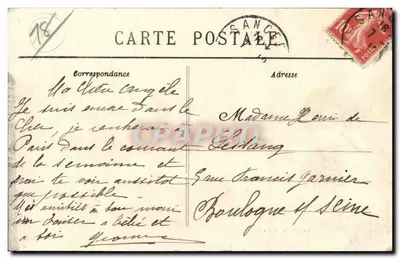 78
SANCE
SANC
CARTE POSTALE
Correspondance
Adresse
Ma chère Angèle
Je suis encore dans le
Cher, je rentrerai à
Paris dans le courant
de la semaine et
irai te voir aussitôt
que possible
amitiés à ton mari
un baiser à bébé et
à toi
Madame Henri de
5 rue Francis Garnier
Boulogne s/ Seine